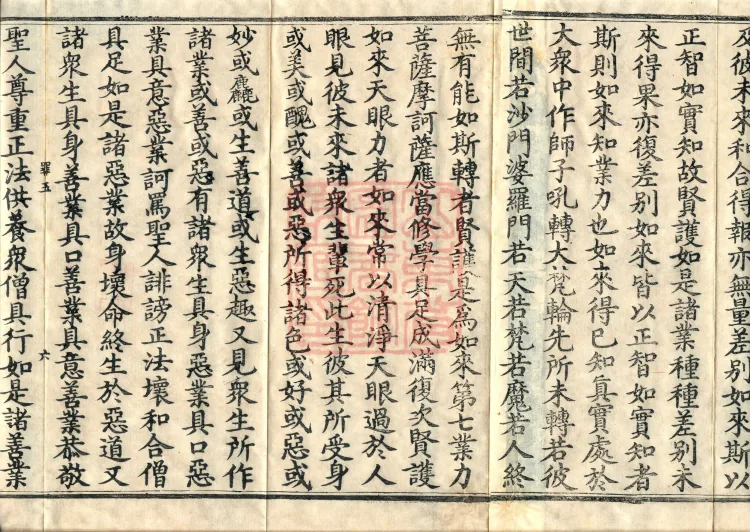 及彼未來和合得報亦無量差別如來斯以
正智如實知故賢護如是諸業種種差別未
來得果亦復差別如來皆以正智如實知者
斯則如來知業力也如來得已知真實處於
大衆中作師子吼轉大梵輪先所未轉若彼
世間若沙門婆羅門若天若梵若魔若人終
無有能如斯轉者賢護是為如來第七業力
菩薩摩訶薩應當修學具足成滿復次賢護
如來天眼力者如來常以清淨天眼過於人
眼見彼未來諸衆生輩死此生彼其所受身
或美或醜或善或惡所得諸色或好或惡或
妙或麤或生善道或生惡趣又見衆生所作
諸業或善或惡有諸衆生具身惡業具口惡
業具意惡業訶罵聖人誹謗正法壞和合僧
具足如是諸惡業故身壞命終生於惡道又
諸衆生具身善業具口善業具意善業恭敬
罪五 六
聖人尊重正法供養衆僧具行如是諸善業